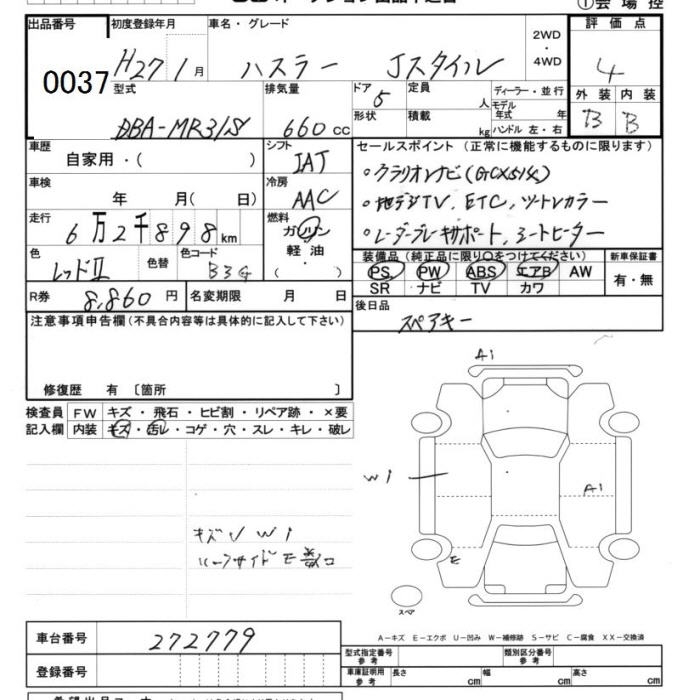 ① 会場控
出品番号 初度登録年月 車名・グレード 2WD・4WD 評価点
0037 H27 1月 ハスラー Jスタイル 4
型式 排気量 ドア 5 定員 人 ディーラー・並行 外装 内装
DBA-MR31S 660cc 形状 積載 kg モデル年式 年 ハンドル 左・右 B B
車歴 シフト セールスポイント (正常に機能するものに限ります)
自家用・( ) IAT ○クラリオンナビ(GCX514)
車検 冷房 ○地デジTV, ETC, ツートンカラー
年 月( 日) AAC ○レーダーブレーキサポート, シートヒーター
走行 燃料
6万2千898km ガソリン
色 色替 色コード 軽油・
レッドⅡ B3G ( )
装備品 (純正品に限り○をつけてください) 新車保証書
PS PW ABS エアB AW 有・無
SR ナビ TV カワ
R券 8,860円 名変期限 月 日 後日品
スペアキー
注意事項申告欄(不具合内容等は具体的に記入して下さい)
修復歴 有 〔箇所 〕
検査員 FW キズ・飛石・ヒビ割・リペア跡・×要
記入欄 内装 キズ・汚レ・コゲ・穴・スレ・キレ・破レ
A1
W1
A1
キズ W1
E
スペア
A-キズ E-エクボ U-凹み W-補修跡 S-サビ C-腐食 XX-交換済
車台番号 272779
登録番号
型式指定番号 参考 類別区分番号 参考
車庫証明用 参考 長さ cm 幅 cm 高さ cm